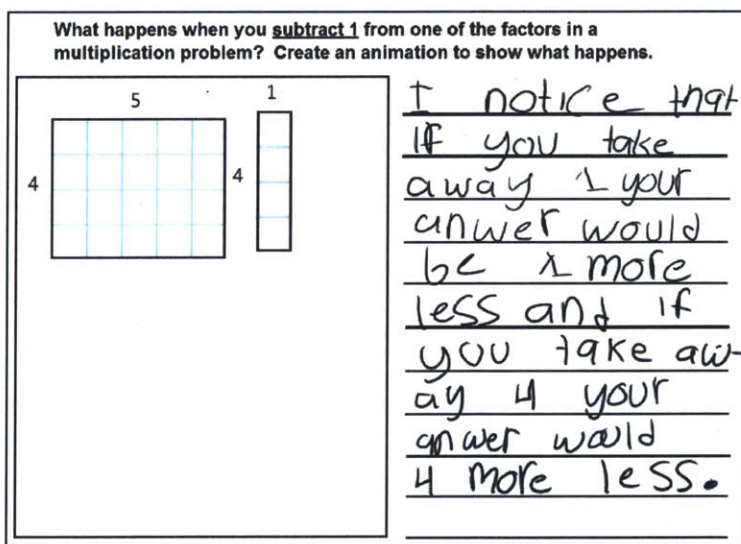 What happens when you subtract 1 from one of the factors in a
multiplication problem? Create an animation to show what happens.
5 1
4 4
I notice that
If you take
away 1 your
anwer would
be 1 more
less and if
you take aw-
ay 4 your
anwer would
4 more less.